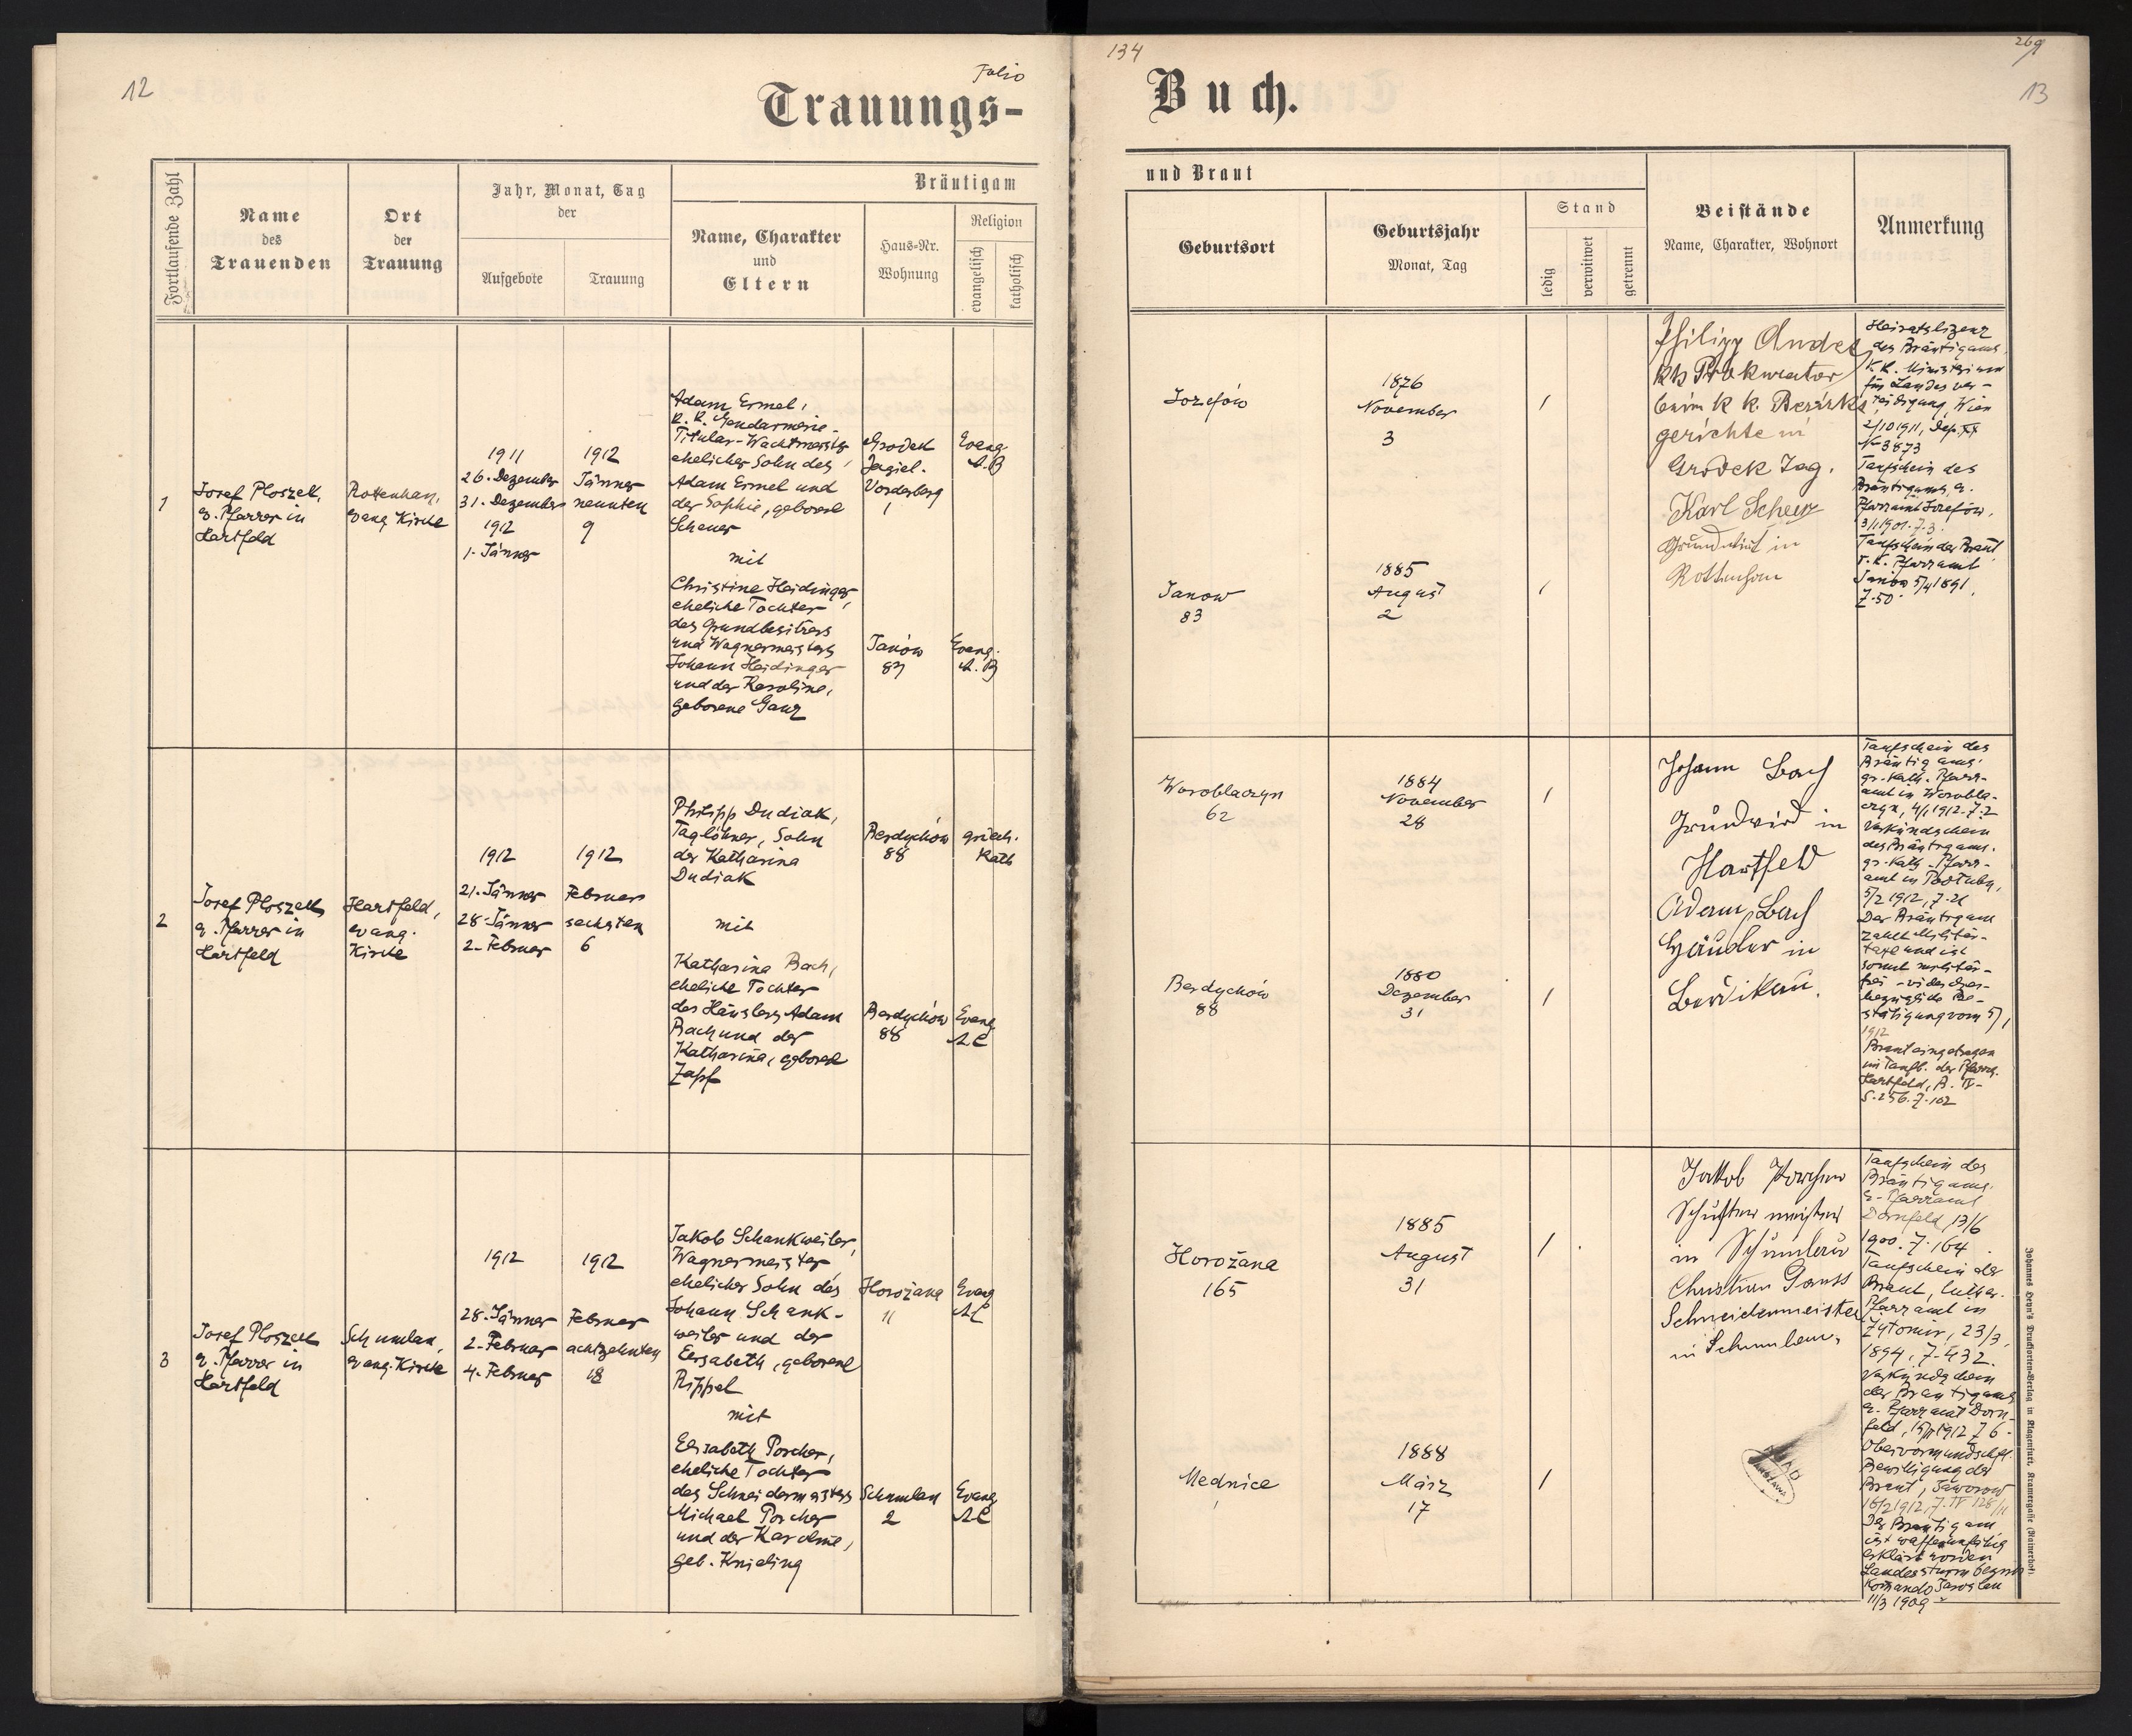 12
Folio
Trauungs-
Fortlaufende Zahl
Name
des
Trauenden
Ort
der
Trauung
Jahr, Monat, Tag
der
Aufgebote
Trauung
Bräutigam
Name, Charakter
und
Eltern
Haus-Nr.
Wohnung
Religion
evangelisch
katholisch
1
Josef Ploszek,
e. Pfarrer in
Hartfeld
Rottenhan,
evang Kirche
1911
26. Dezember
31. Dezember
1912
1. Jänner
1912
Jänner
neunten
9
Adam Ermel,
k. k. Gendarmerie-
Titular-Wachtmeister
ehelicher Sohn des
Adam Ermel und
der Sophie, geborene
Scheuer
mit
Christine Heidinger,
eheliche Tochter
des Grundbesitzers
und Wagnermeisters
Johann Heidinger
und der Karoline,
geborene Ganz
Grodek
Jagiel.
Vorderberg
1
Evang
A.B
Janów
83
Evang.
A.B
2
Josef Ploszek
e. Pfarrer in
Hartfeld
Hartfeld,
evang.
Kirche
1912
21. Jänner
28. Jänner
2. Februar
1912
Februar
sechsten
6
Philipp Dudiak,
Taglöhner, Sohn
der Katharina
Dudiak
mit
Katharina Bach,
eheliche Tochter
des Häuslers Adam
Bach und der
Katharina, geborene
Zapf
Berdychów
88
griech.
Kath
Berdychów
88
Evang
A.C
3
Josef Ploszek
e. Pfarrer in
Hartfeld
Schumlau,
evang. Kirche
1912
28. Jänner
2. Februar
4. Februar
1912
Februar
achtzehnten
18
Jakob Schankweiler,
Wagnermeister
ehelicher Sohn des
Johann Schank-
weiler und der
Elisabeth, geborene
Rippel
mit
Elisabeth Porcher,
eheliche Tochter
des Schneidermeisters
Michael Porcher
und der Karoline,
geb. Knieling
Horožana
11
Evang
A.C
Schumlau
2
Evang
A.C
134
269
13
Buch.
und Braut
Geburtsort
Geburtsjahr
Monat, Tag
Stand
ledig
verwitwet
getrennt
Beistände
Name, Charakter, Wohnort
Anmerkung
Jozefów
1876
November
3
1
Janow
83
1885
August
2
1
Philipp Andres
kk Prokurator
beim k k. Bezirks
gerichte in
Grodek Jag.
Karl Scheer
Grundwirt in
Rottenhan
Heiratslizenz
des Bräutigams,
K. K. Ministerium
für Landesver-
teidigung, Wien
2/10 1911, Dep. XX
No 3873
Taufschein des
Bräutigams, e.
Pfarramt Josefow,
3/1 1901. Z. 3.
Taufschein der Braut
r. K. Pfarramt
Janów 5/4 1891,
Z. 50.
Woroblaczyn
62
1884
November
28
1
Berdychów
88
1880
Dezember
31
1
Johann Bach
Grundwird in
Hartfeld
Adam Bach
Häusler in
Berdikau.
Taufschein des
Bräutigams:
gr.-kath. Pfarr-
amt in Worobla-
czyn, 4/1 1912. Z. 2
Verkündschein
des Bräutigams.
gr.-kath. Pfarr-
5/2 1912, Z. 21
Der Bräutigam
zahlt Militär-
taxe und ist
somit militär-
frei - vide dies-
bezügliche Be-
stätigung vom 5/1
1912
Braut eingetragen
im Taufb. der Pfarre
Hartfeld, B. IV-
S. 256. Z. 102
Horožana
165
1885
August
31
1
Mednice
1
1888
März
17
1
Jakob Porcher
Schustermeister
in Schumlau
Christian Ganss
Schneidermeister
in Schumlau,
Taufschein des
Bräutigams.
e. Pfarramt
Dornfeld, 13/6
1900. Z. 164
Taufschein der
Braut, luther.
Pfarramt in
Zytomir, 23/3,
1894, Z. 432.
Verkündschein
des Bräutigams
e. Pfarramt Dorn-
feld, 15/2 1912 Z 6.
Obervormundschftl.
Bewilligung der
Braut, Jaworow
16/2 1912, Z. IV 128/11
Der Bräutigam
ist waffenunfähig
erklärt worden
Landessturm bezirks
Komando Jaroslau
11/3 1909
Johannes Heyn's Drucksorten-Verlag in Klagenfurt, Kramergasse (Rainerhof).